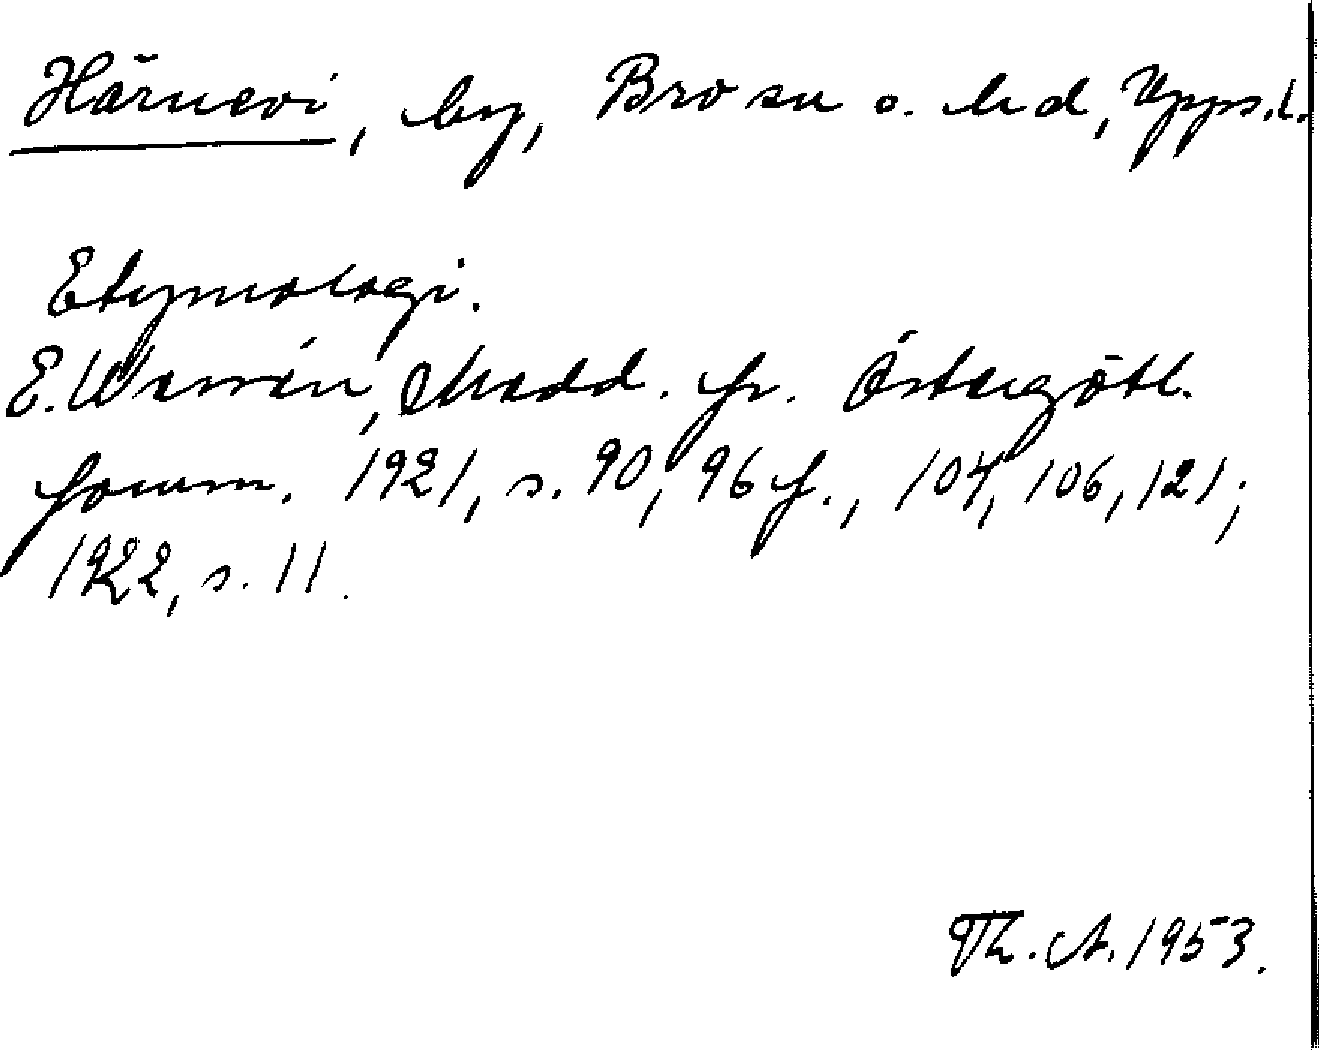 Härnevi, by, Bro sn o. hd, Upps.l.
Etymologi.
E. Wessén, Medd. fr. Östergötl.
fornm. 1921, s. 90, 96 f., 104, 106, 121;
1922, s. 11.
Th. A. 1953.